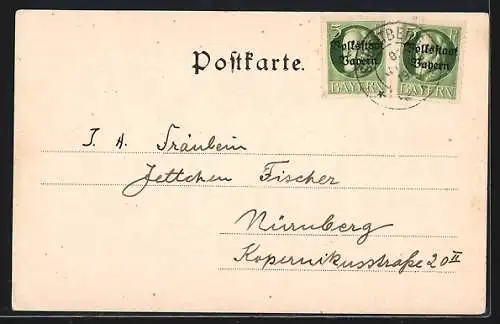 Postkarte.
5 Pf
Volksstaat
Bayern
BAYERN
5 Pf
Volksstaat
Bayern
BAYERN
NÜRNBERG
I. H. Fräulein
Jettchen Fischer
Nürnberg
Kopernikusstraße 20 II